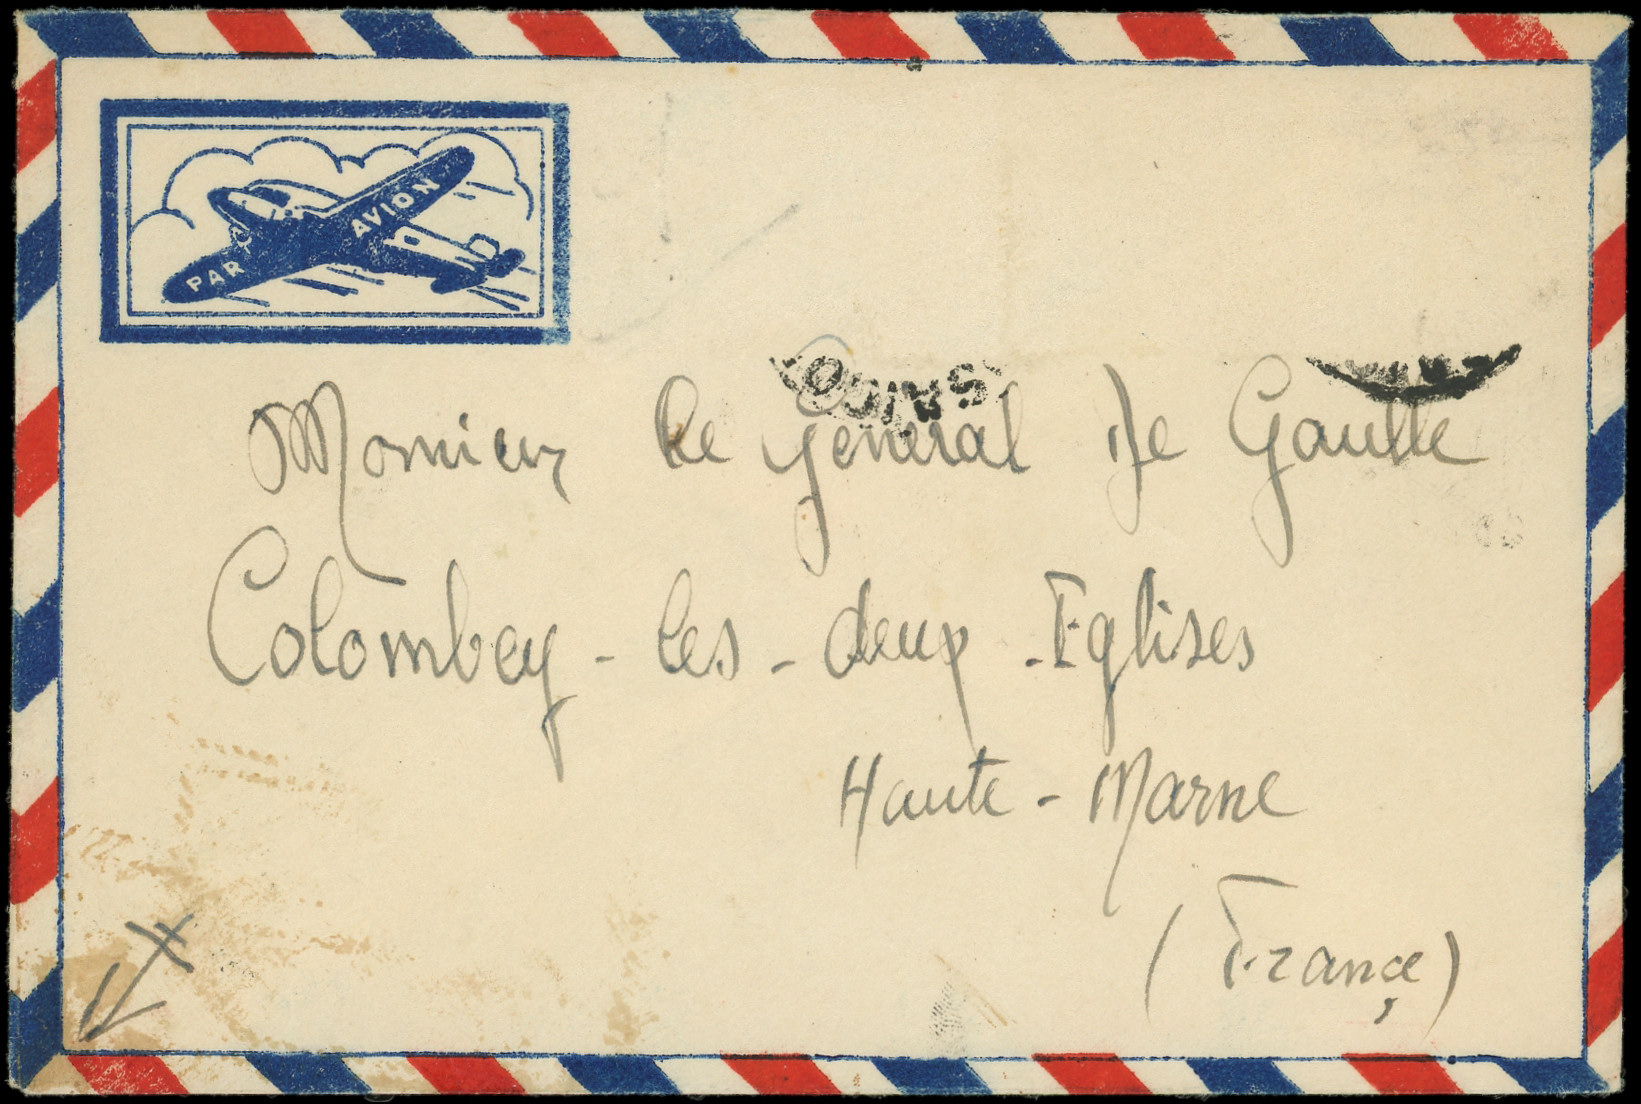 PAR AVION
Monsieur le général De Gaulle
Colombey-les-deux-Eglises
Haute-Marne
(Françe)